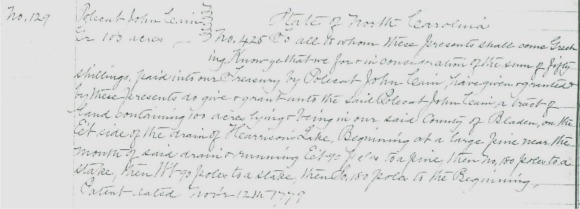 No. 129 Polecat John Cain State of North Carolina
Gr 100 acres No. 425 To all to whom these presents shall come Greet
ing Know ye that we for & in consideration of the sum of fifty
shillings, paid into our Treasury by Polecat John Cain, have given & granted &
by these presents do give & grant unto the said Polecat John Cain a tract of
land containing 100 acres lying & being in our said County of Bladen, on the
Est side of the drain of Hearrison Lake, Beginning at a large pine near the
mouth of said drain & running Et 90 po to a pine, then No, 180 poles to a
stake, then Wt 90 poles to a stake, then So, 180 poles to the Beginning,
Patent dated Nov'r 12th 1779